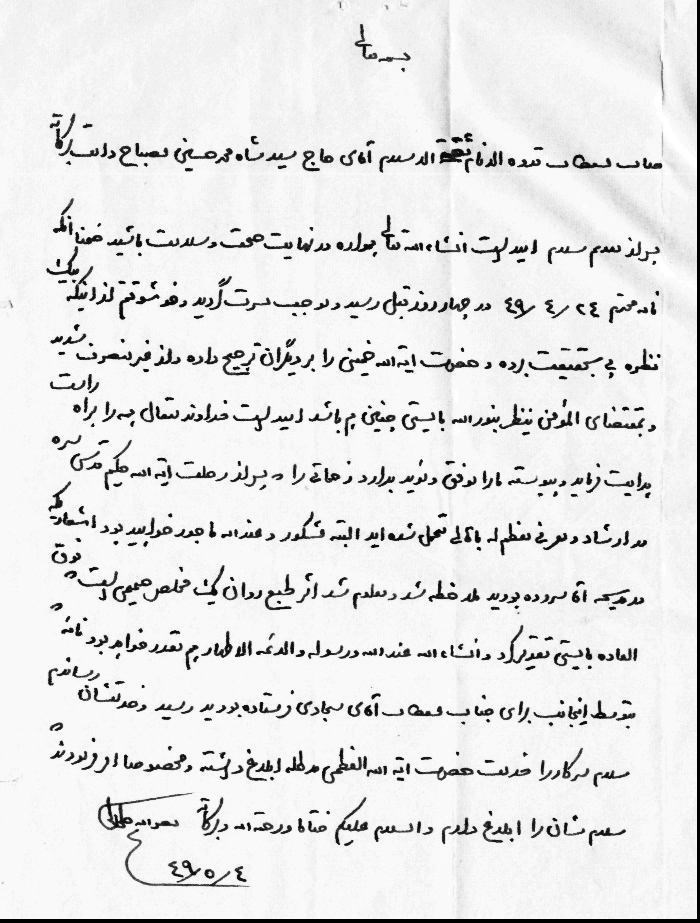 بسمه تعالی
جناب مستطاب قدوه الانام ثقة الاسلام آقای حاج سید شاه محمد حسینی مصباح دامت برکاته
پس از سلام امید است انشاء الله تعالی همواره در نهایت صحت و سلامت باشید ضمنا آنکه
نامه محترم ۴۹/۴/۲۴ در چهار روز قبل رسید و موجب مسرت گردید و خوشوقتم از اینکه بیک
نظره پی بحقیقت برده و حضرت آیة الله خمینی را بر دیگران ترجیح داده و از غیر منصرف شدید
و بمقتضای المؤمن ینظر بنور الله بایستی چنین هم باشد امید است خداوند متعال همه را براه راست
هدایت فرماید و پیوسته ما را موفق و مؤید بدارد زحماتی را که پس از رحلت آیة الله حکیم قدس سره
در ارشاد و معرفی معظم له با اهالی متحمل شده اید البته مشکور و عند الله ماجور خواهید بود اشعاریکه
در مدیحه آقا سروده بودید ملاحظه شد و معلوم شد اثر طبع روان یک مخلص صمیمی است که فوق
العاده بایستی تقدیر کرد و انشاء الله عند الله و رسوله و الائمة الاطهار هم تقدیر خواهد بود نامه که
بتوسط اینجانب برای جناب مستطاب آقای سجادی فرستاده بودید رسید و خدمتشان رساندم
سلام سرکار را خدمت حضرت آیة الله العظمی مدظله ابلاغ داشته و مخصوصا امر فرمودند که
سلامشان را ابلاغ دارم والسلام علیکم ختاما ورحمة الله وبرکاته نصر الله خلخالی
۴۹/۵/۴